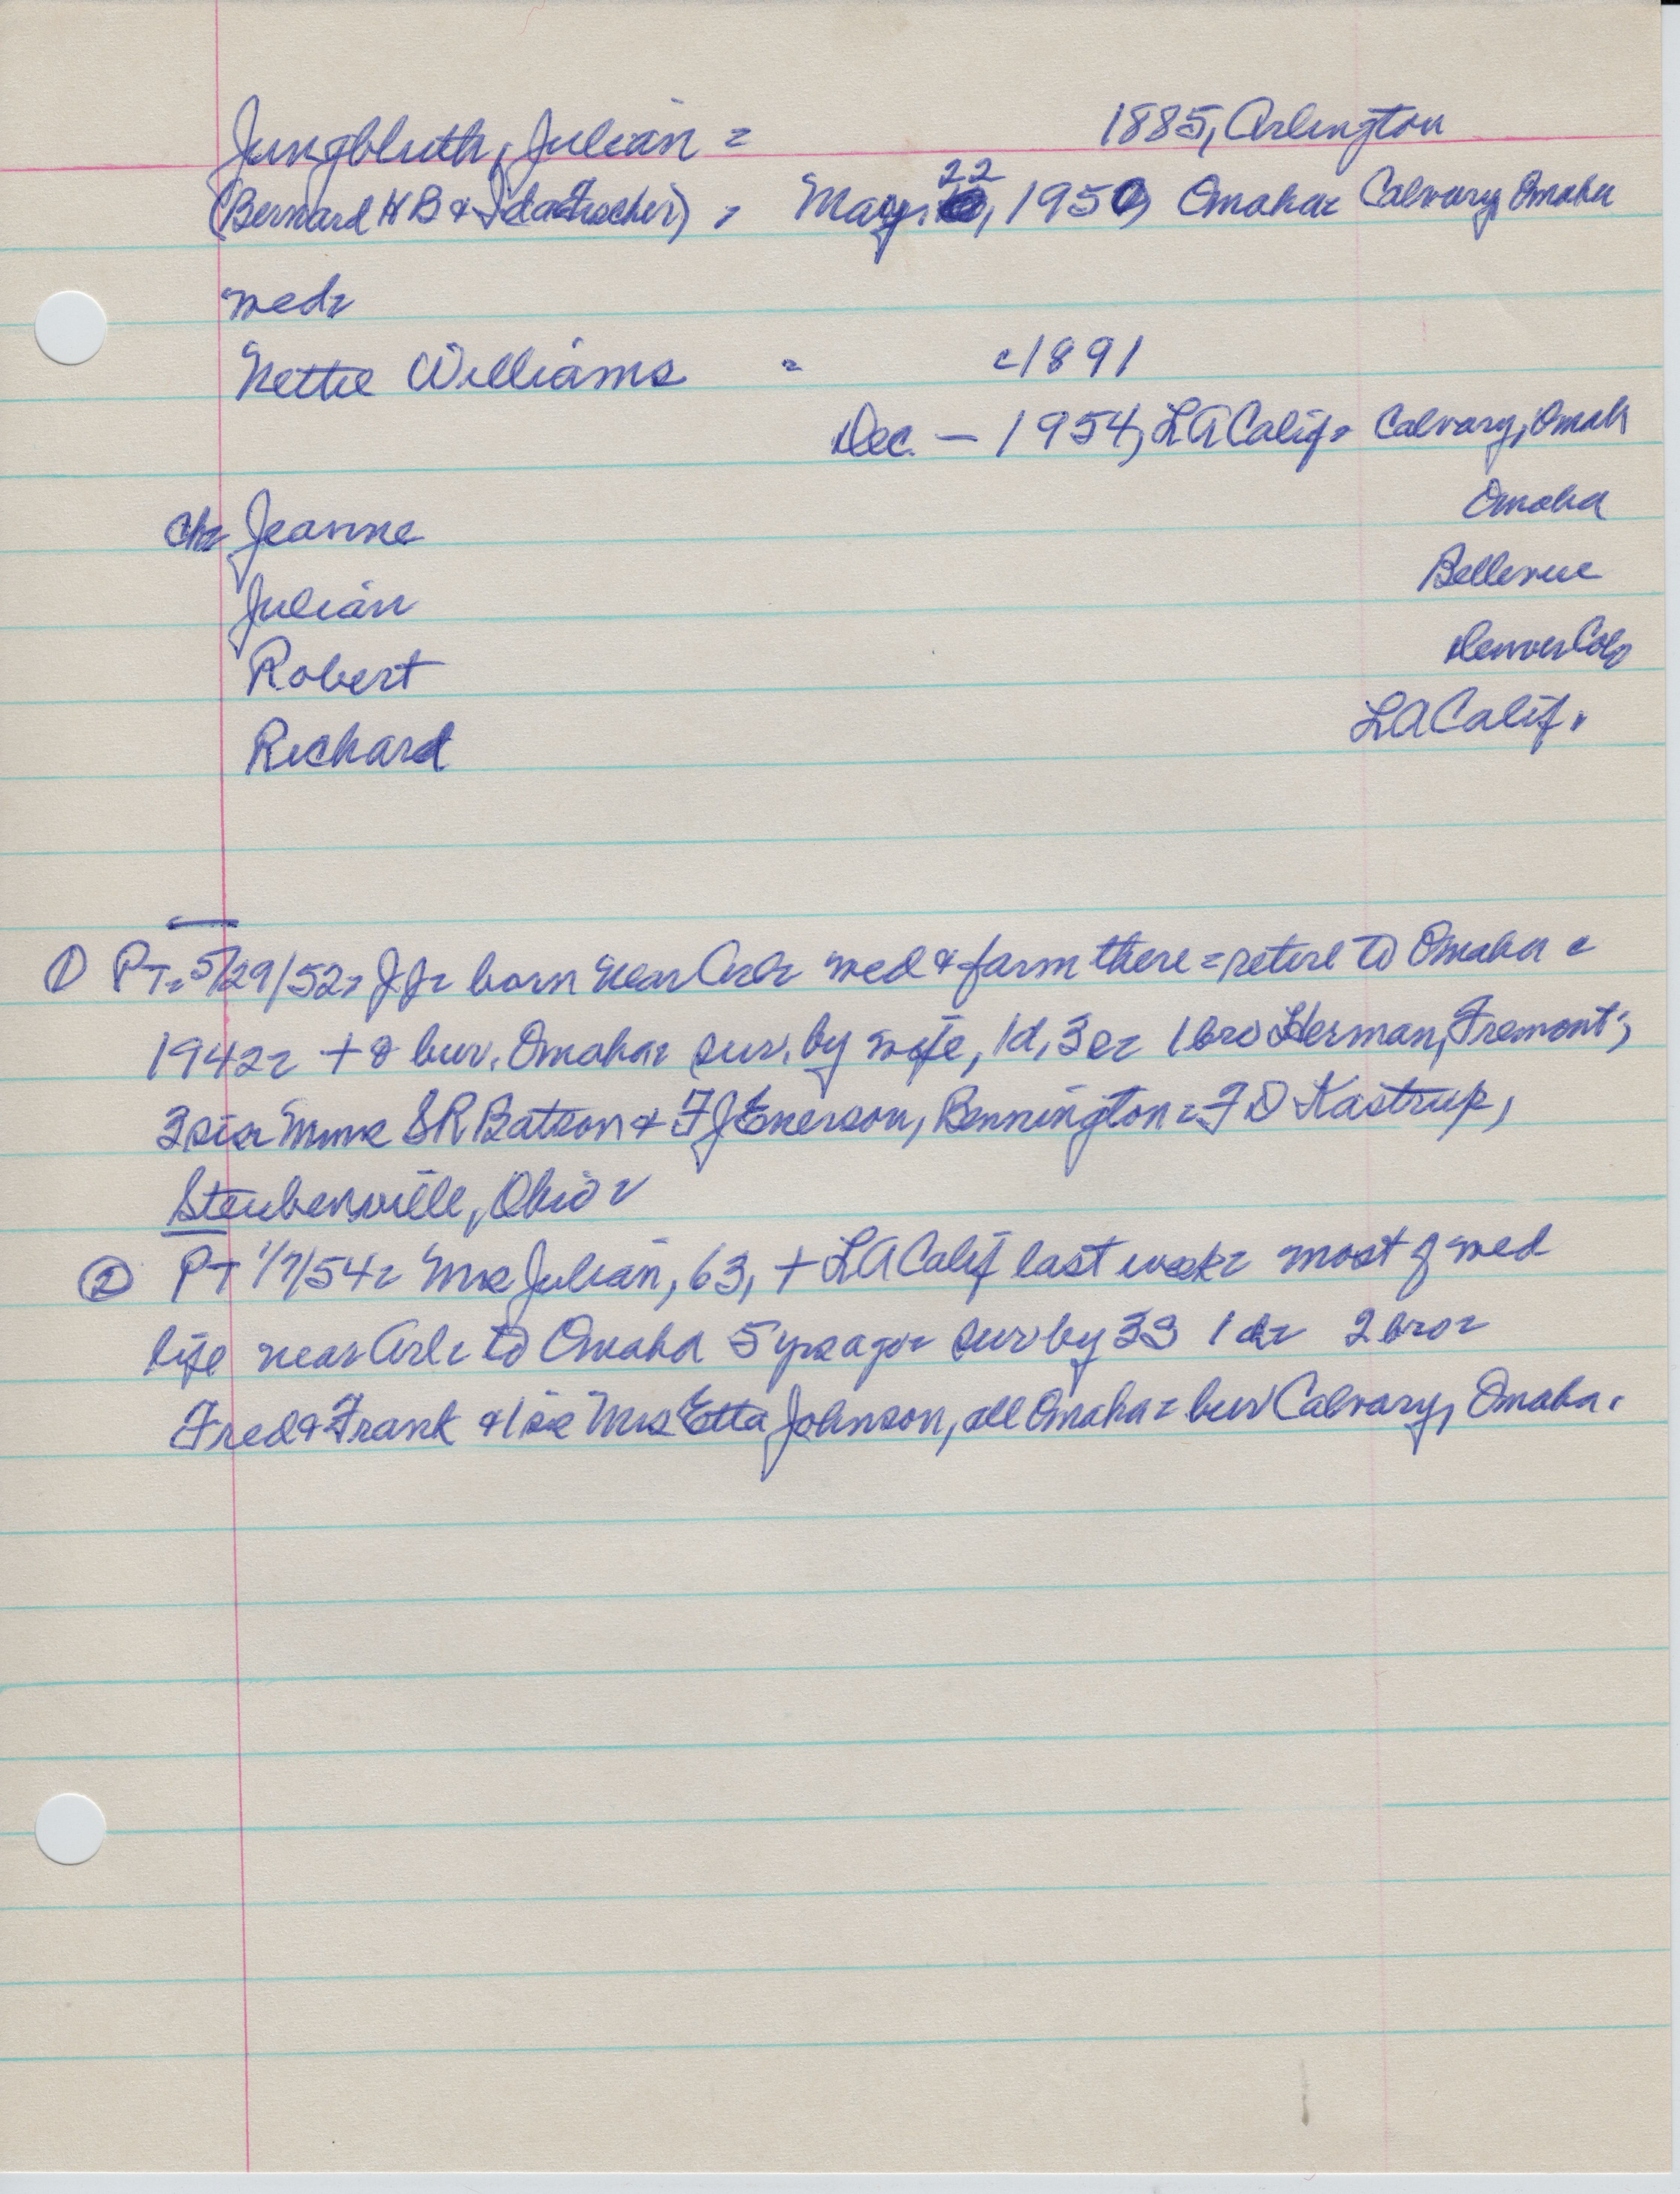 Jungbluth, Julian = 1885, Arlington
(Bernard H B & Ida ) = May 22, 1950, Omaha = Calvary, Omaha
wed =
Nettie Williams = c1891
Dec. — 1954, LA Calif = Calvary, Omah
ch = Jeanne Omaha
Julian Bellevue
Robert Denver Colo
Richard LA Calif.
① PT = 5/29/52 = JJ = born near Arl = wed & farm there = retire to Omaha c
1942 = + & bur. Omaha = sur. by wife, 1d, 3s = 1 bro Herman, Fremont;
3 sis = Mmes S R Batson & F J Enerson, Bennington = F D Kastrup,
Steubenville, Ohio =
② PT 1/7/54 = Mrs Julian, 63, + LA Calif last week = most of wed
life near Arl = to Omaha 5 yrs ago = sur by 3S 1 d = 2 bro =
Fred & Frank & 1 sis Mrs Etta Johnson, all Omaha = bur Calvary, Omaha.